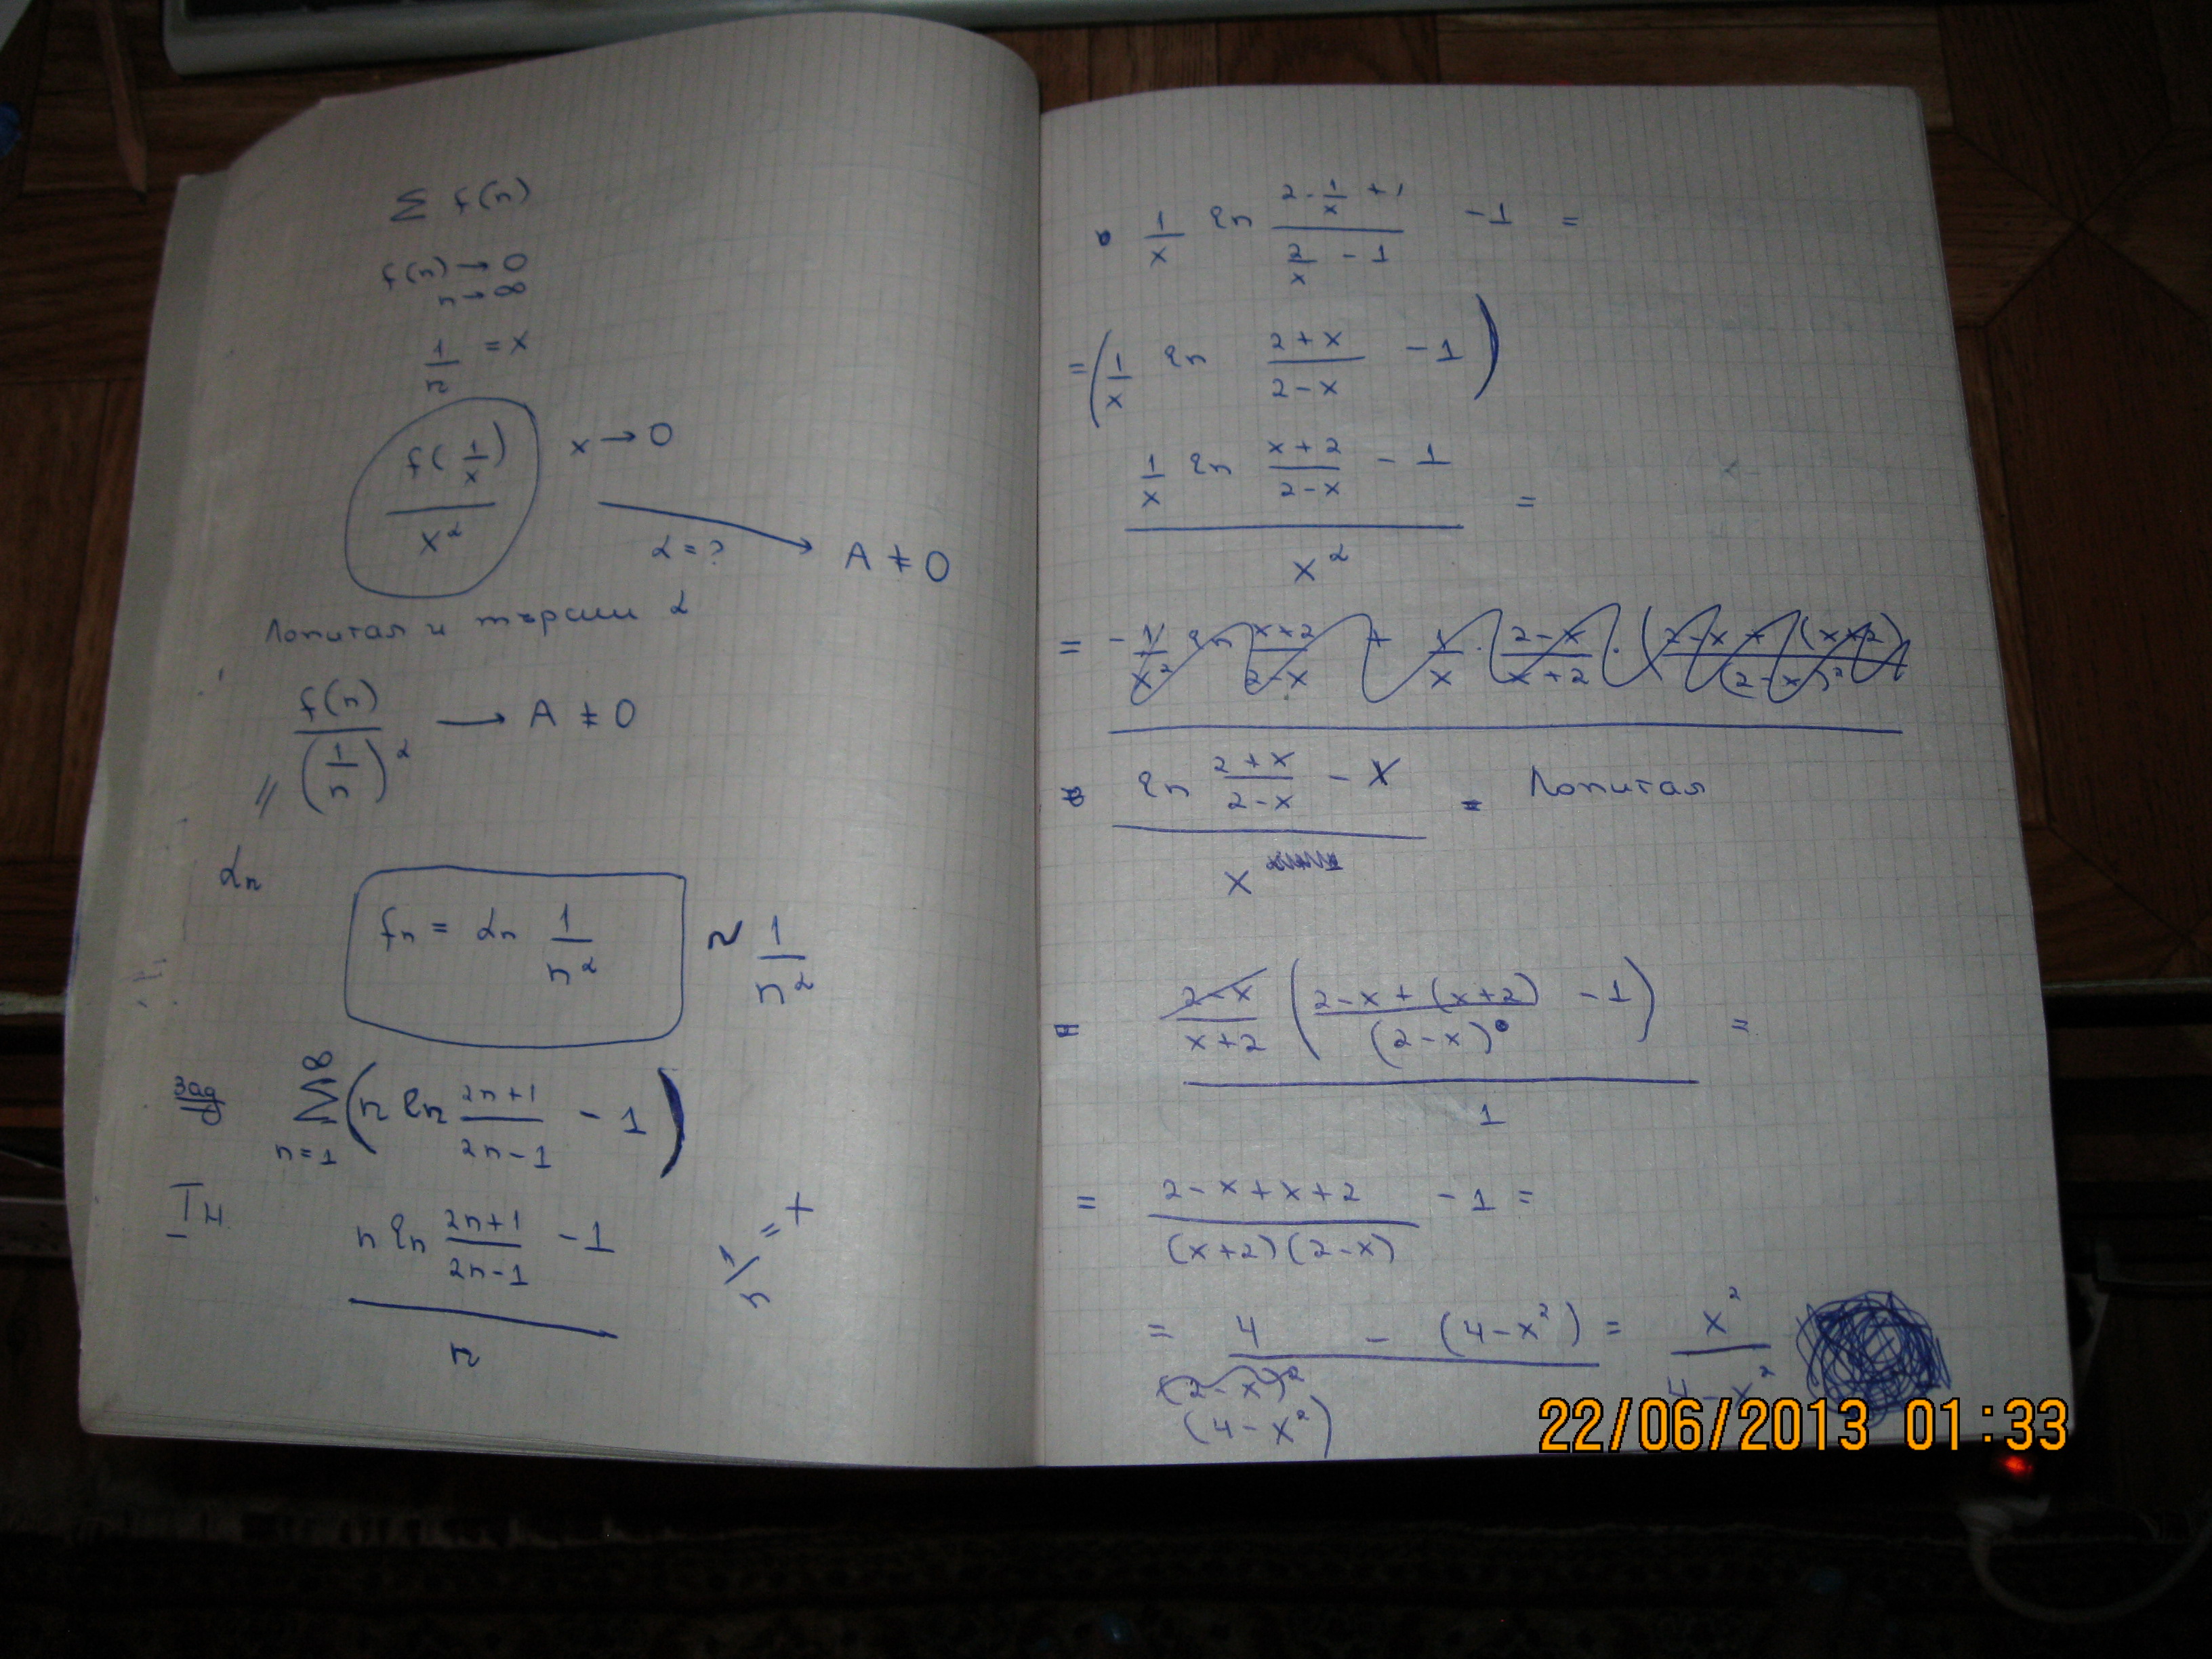 Σ f(n)
f(n) → 0
n → ∞
1/n = x
f(1/x) / x^α   x → 0
α = ?   A ≠ 0
Лопитал и търсим α
f(n) / (1/n)^α → A ≠ 0
=
αn
fn = αn 1/n^2 ~ 1/n^2
Зад
∞ Σ n=1 (n ln (2n+1)/(2n-1) - 1)
I н
(n ln (2n+1)/(2n-1) - 1) / n   1/n = x
1/x ln (2·1/x + 1)/(2/x - 1) - 1 =
= (1/x ln (2+x)/(2-x) - 1)
(1/x ln (x+2)/(2-x) - 1) / x^α =
= -1/x^2 ln (x+2)/(2-x) + 1/x · (2-x)/(x+2) · (2-x+(x+2))/(2-x)^2
(ln (2+x)/(2-x) - x) / x = Лопитал
= (2-x)/(x+2) ((2-x+(x+2))/(2-x) - 1) / 1 =
= (2-x+x+2)/((x+2)(2-x)) - 1 =
= (4 - (4-x^2)) / (4-x^2) = x^2/(4-x^2)
(2-x)^2
22/06/2013 01:33